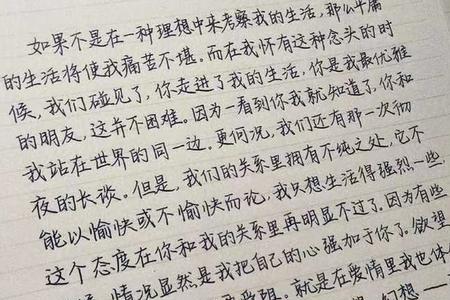 如果不是在一种理想中来考察我的生活,那么平庸
的生活将使我痛苦不堪。而在我怀有这种念头的时
候,我们碰见了,你走进了我的生活,你是我最优雅
的朋友,这并不困难。因为一看到你我就知道了,你和
我站在世界的同一边,更何况,我们还有那一次彻
夜的长谈。但是,我们的关系里拥有不纯之处,它不
能以愉快或不愉快而论,我只想生活得强烈一些,
这个态度在你和我的关系里再明显不过了。因为有些
情况显然是我把自己的心强加于你了。欲望
就是在爱情里我也体
幻想